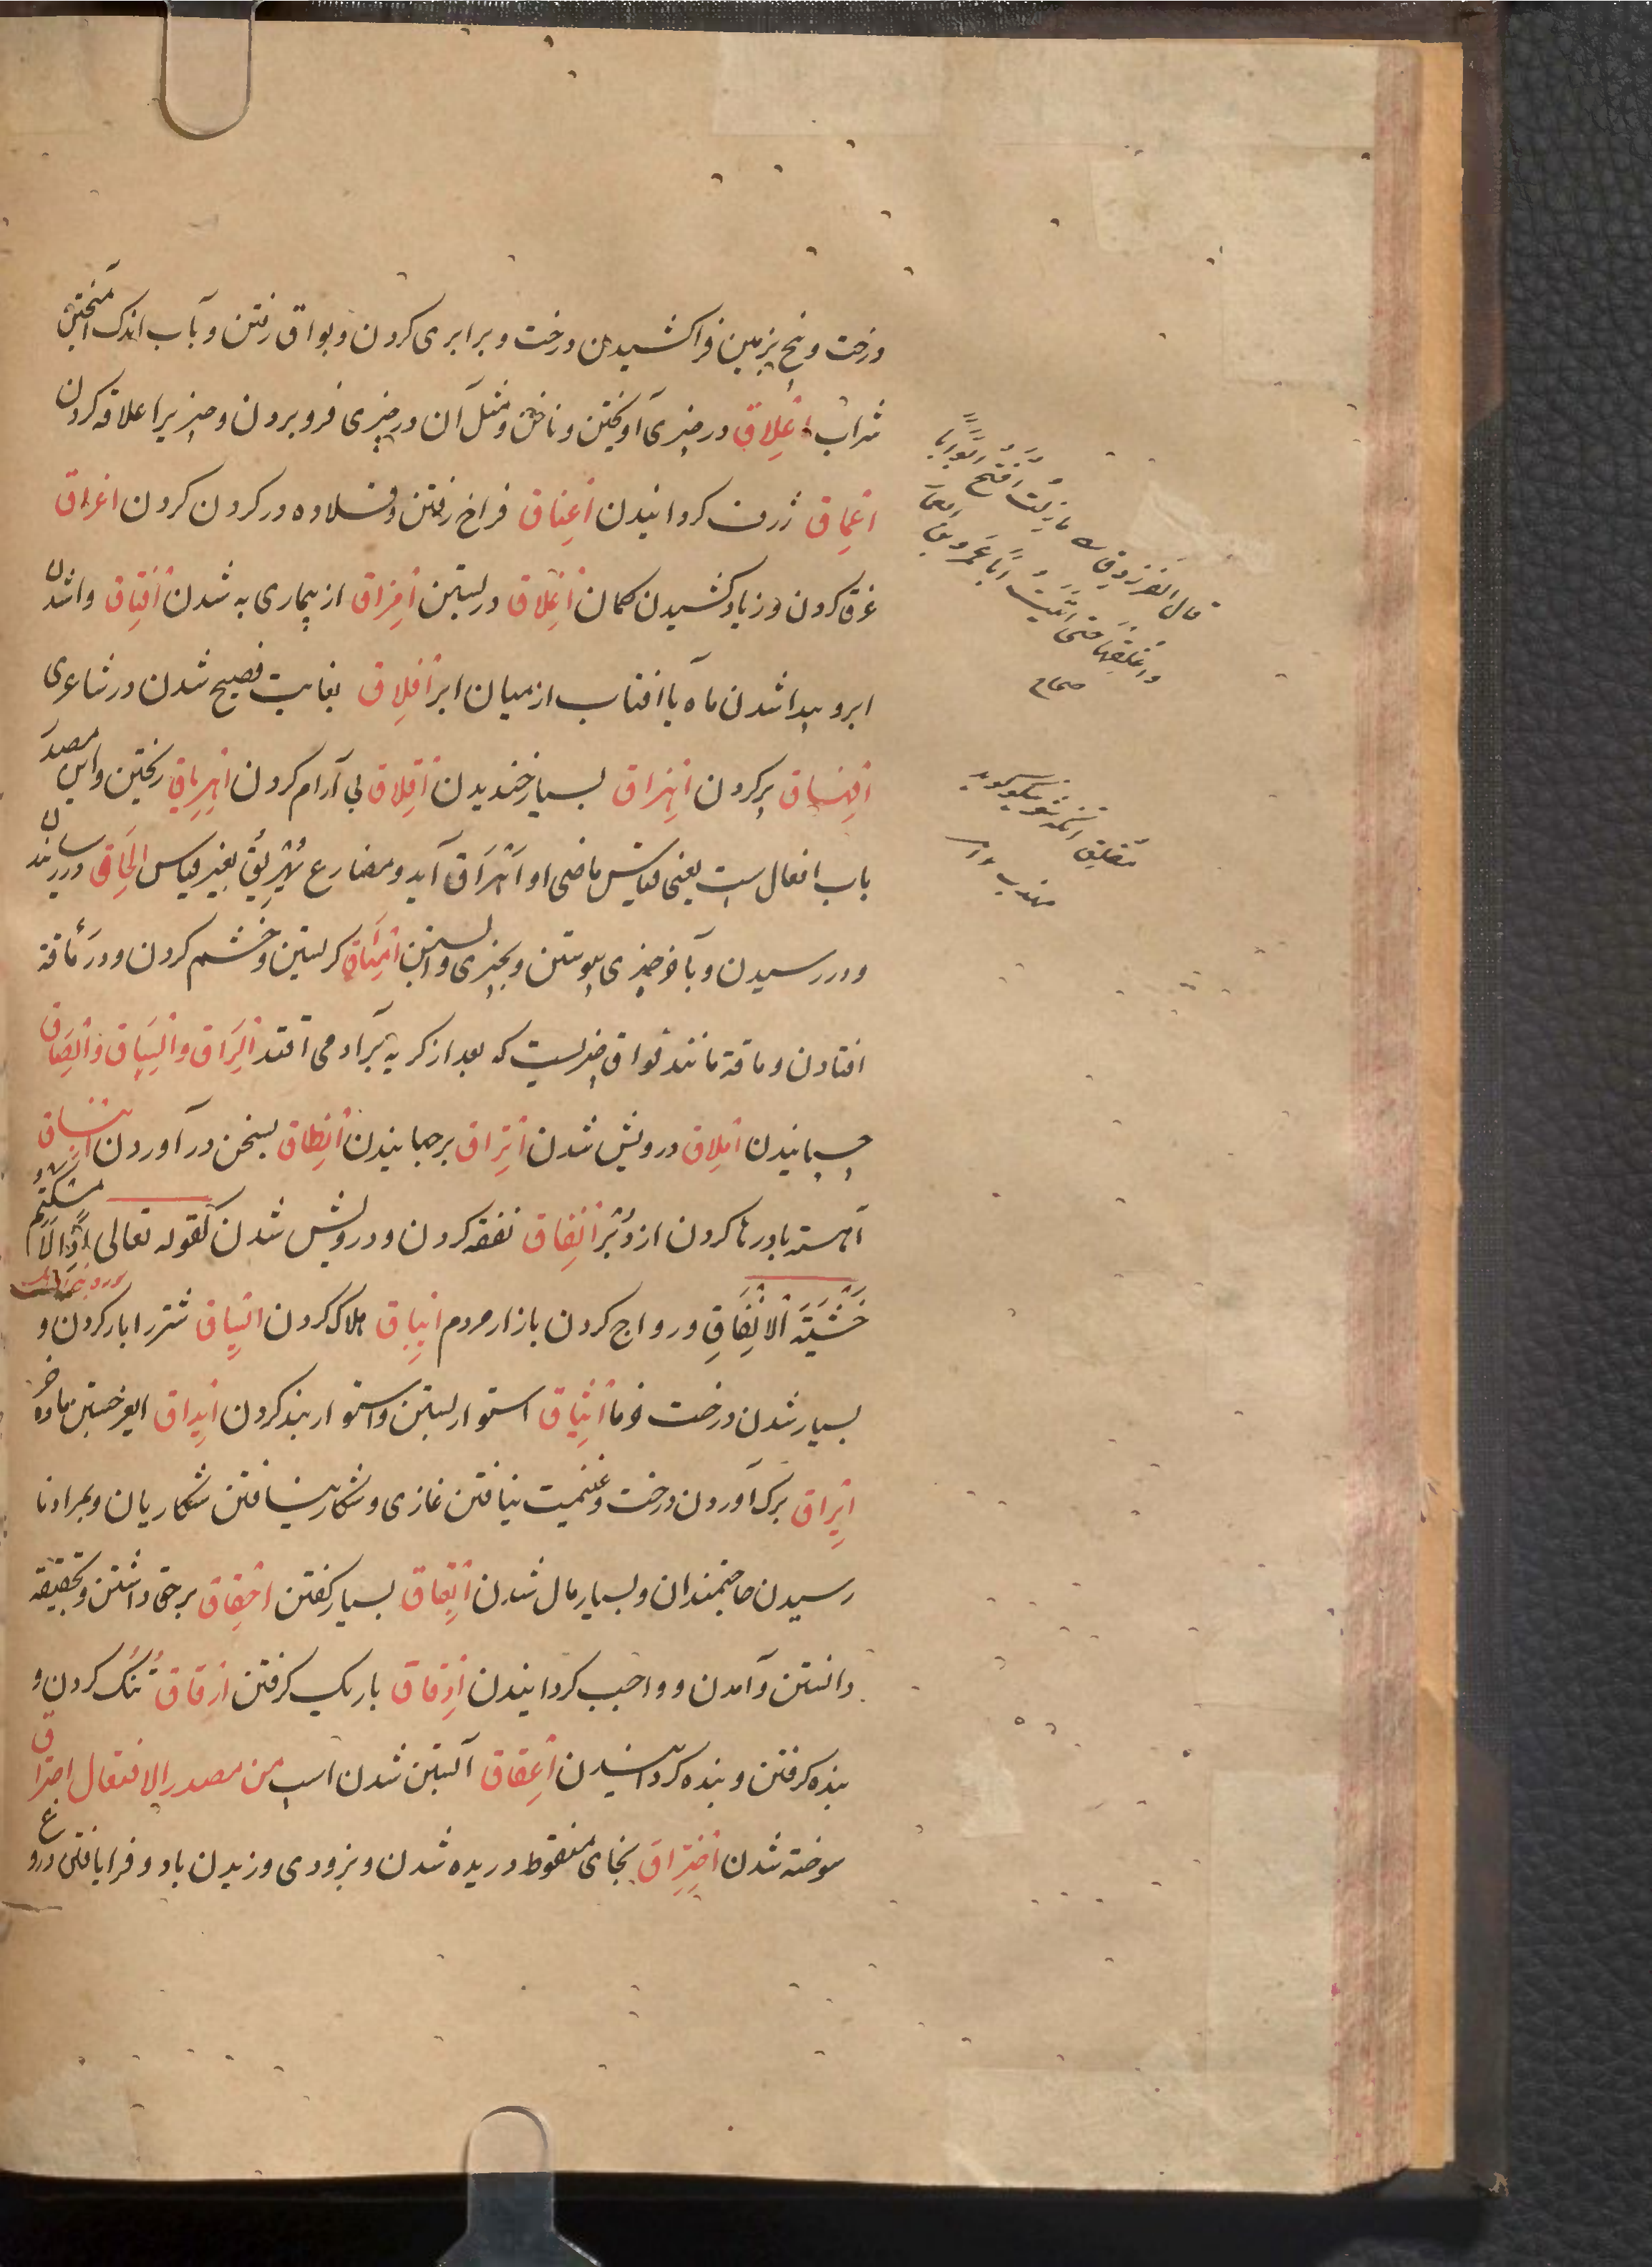 درخت و بیخ بزمین فراکشیدن درخت و برابری کردن و بواق رفتن و بآب اندک آمیختن
شراب اِعْلاق در چیزی آویختن و ناخن و مثل آن در چیزی فرو بردن و چیزیرا علاقه کردن
اِعْماق ژرف کردانیدن اِعْناق فراخ رفتن و قلاده در کردن کردن اغراق
غرق کردن و زیاد کشیدن کمان اِغْلاق در بستن اِفْراق از بیماری به شدن اِفْتاق واشدن
ابر و پیدا شدن ماه یا افتاب از میان ابر اِفْلاق بغایت فصیح شدن در شاعری
اِفْهاق پر کردن اِنْزاق بسیار خندیدن اِقْلاق بی آرام کردن اِهْرِیاق ریختن و این مصدر
باب افعال است یعنی قیاس ماضی او اَهْرَاقَ آید و مضارع یُهْرِیقُ بغیر قیاس اِلْحَاق در رسانیدن
و در رسیدن و بآخر چیزی پیوستن و بچیزی وابستن اِمْآق کریستن و خشم کردن و در مُأقه
افتادن و ماقه مانند فواق چیزیست که بعد از کریه بر آدمی افتد اِلْزَاق و اِلْسَاق و اِلْصَاق
چسبانیدن اِمْلاق درویش شدن اِنْزاق برجهانیدن اِنْطاق بسخن در آوردن
آهسته باد رها کردن از دُبُر اِنْفاق نفقه کردن و درویش شدن کقوله تعالی اِذًا لَاَمْسَکْتُمْ
خَشْیَةَ الْاِنْفَاقِ و رواج کردن بازار مردم اِیباق هلاک کردن ایساق شتر را بار کردن و
بسیار شدن درخت خرما اِیثاق استوار بستن و استوار بند کردن اِیداق ایغر جستن ماده خر
اِیراق برک آوردن درخت و غنیمت نیافتن غازی و شکار نیافتن شکاریان و بمراد نا
رسیدن حاجتمندان و بسیار مال شدن اِبْقاق بسیار کفتن اِحْقاق بر حق داشتن و بحقیقه
دانستن و آمدن و واجب کردانیدن اِدْقاق باریک کرفتن اِرْقاق تُنُک کردن و
بنده کرفتن و بنده کردانیدن اِعْقاق آبستن شدن اسب من مصدر الافتعال احتراق
سوخته شدن اِخْتِرَاق بخای منقوط دریده شدن و بزودی وزیدن باد و فرا بافتن دروغ
قال الفرزدق مازلت افتح ابوابا
واغلقها حتی اتیت ابا عمرو بن
صحاح
مهذب